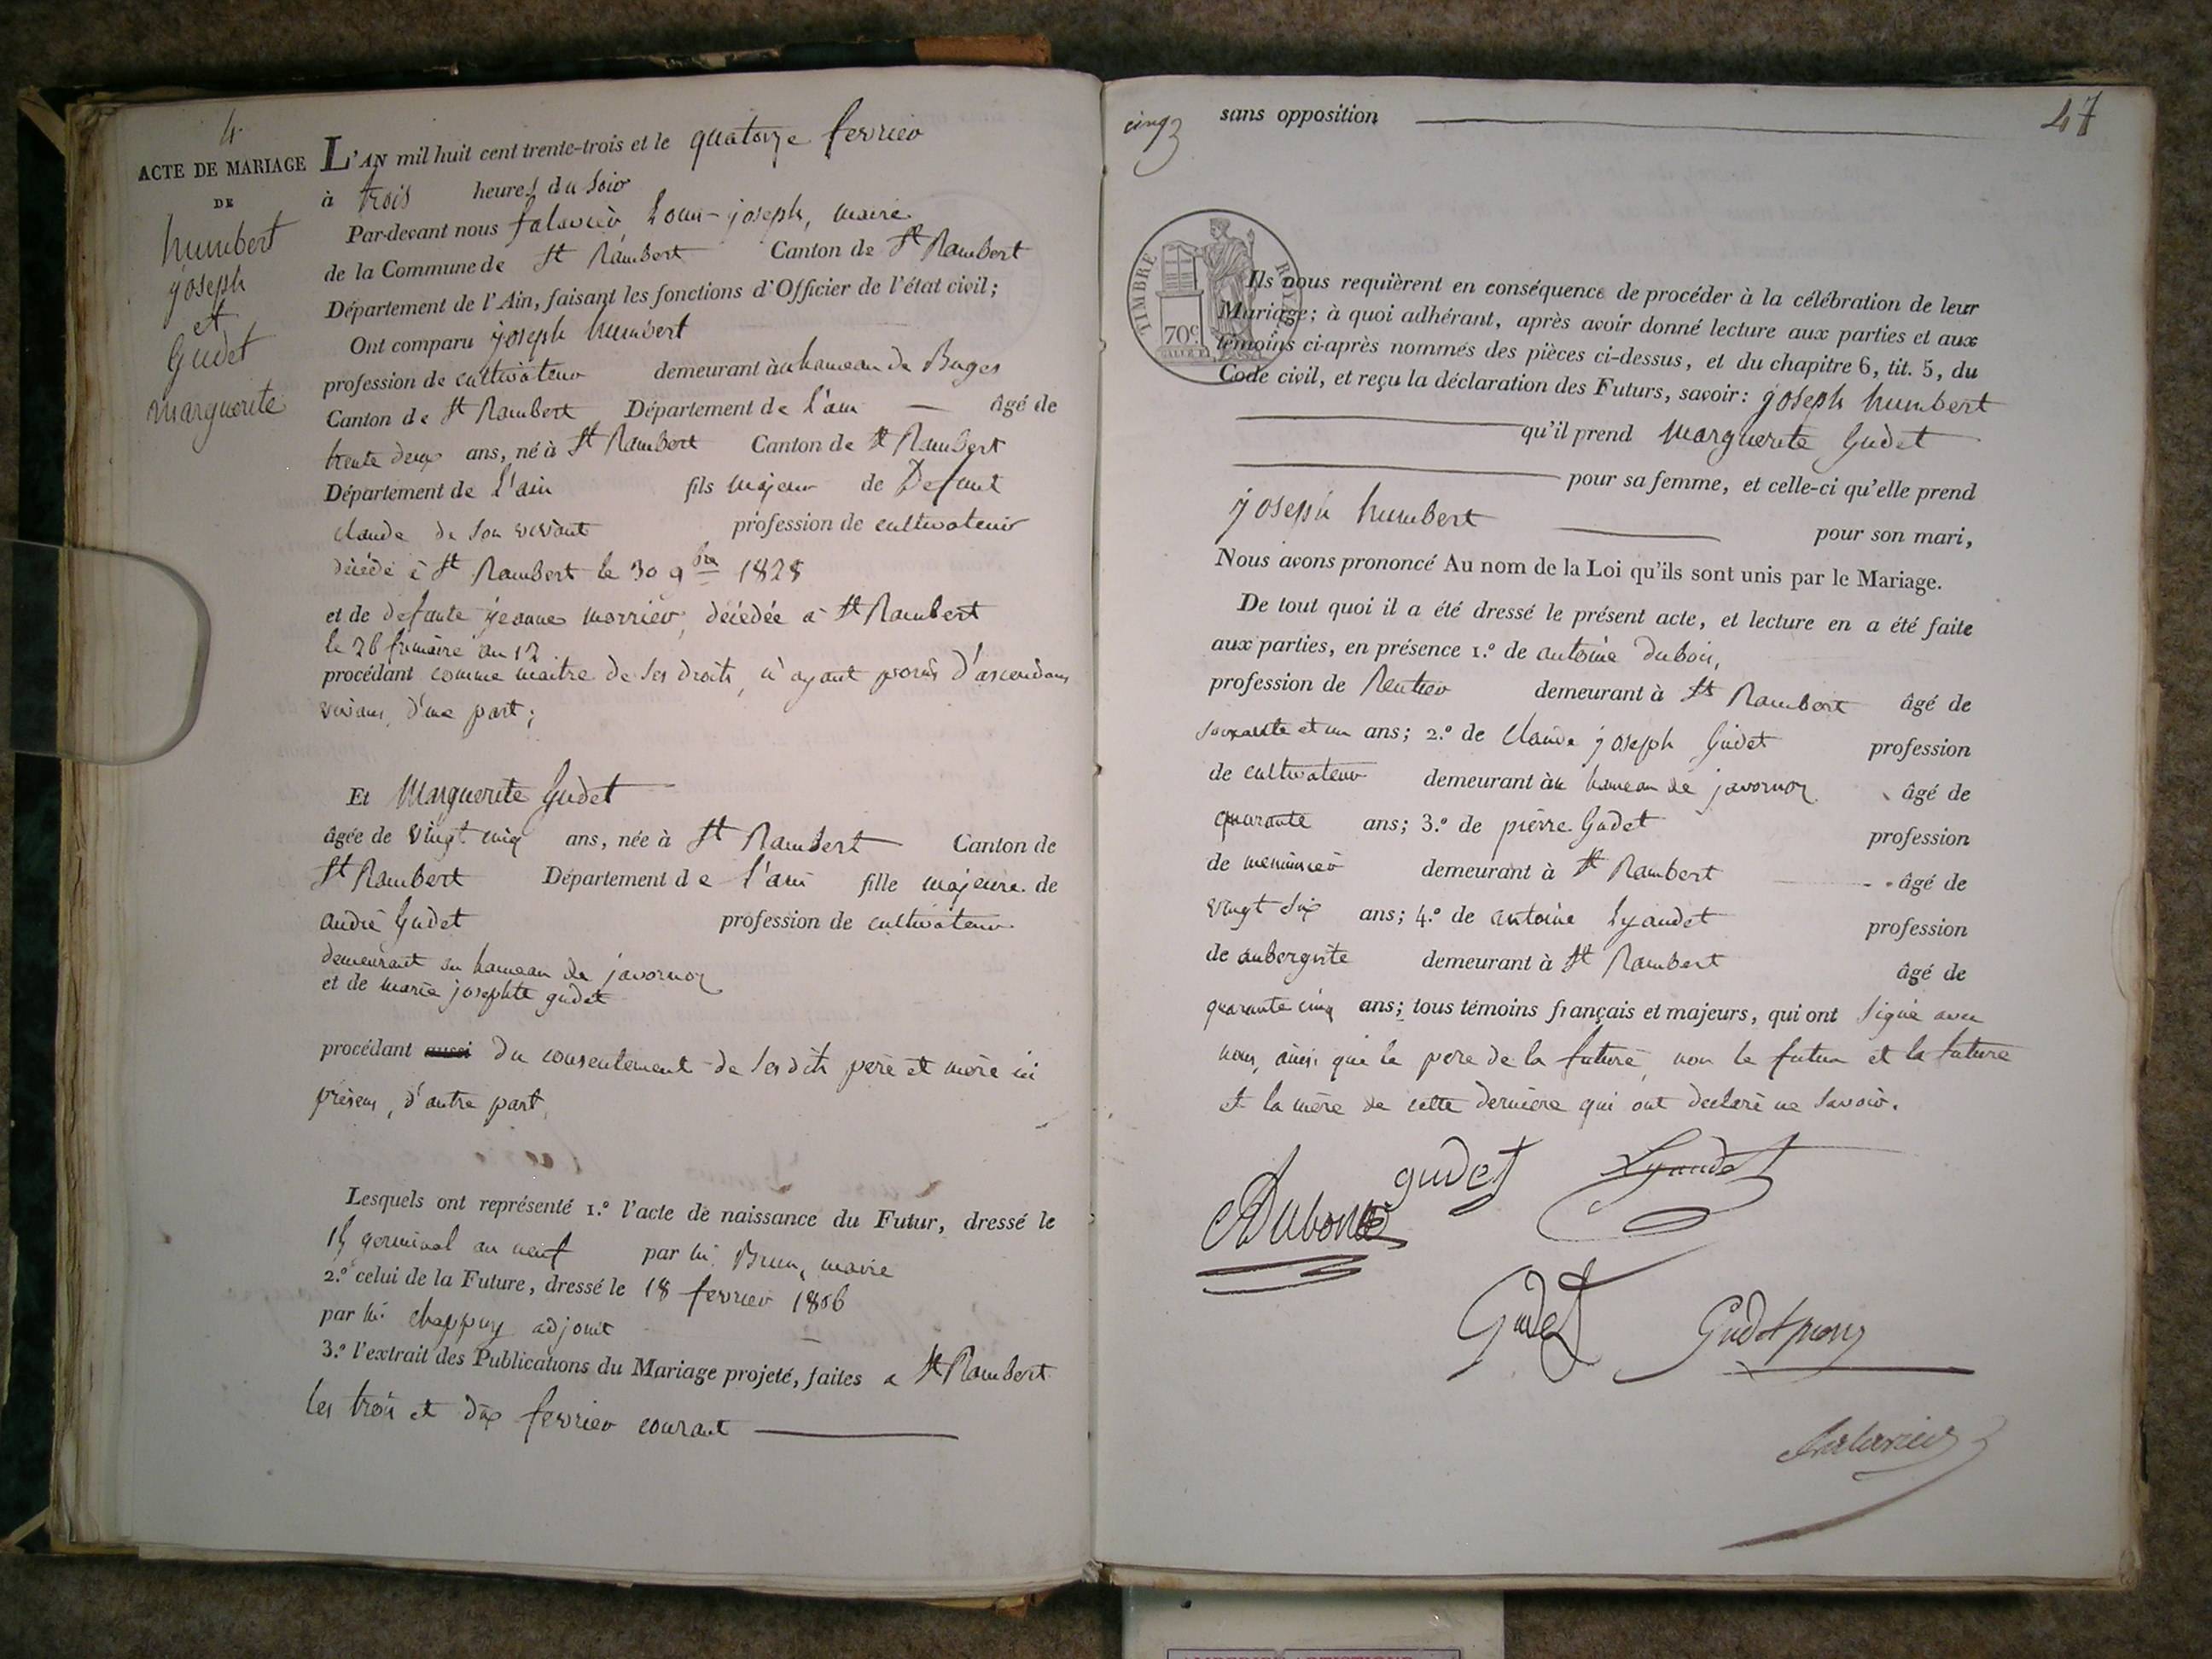 4
ACTE DE MARIAGE
DE
humbert
joseph
et
Gudet
marguerite
L'AN mil huit cent trente-trois et le quatorze fevrier
à trois heures du soir
Par-devant nous falavier Louis-joseph, maire
de la Commune de St Rambert Canton de St Rambert
Département de l'Ain, faisant les fonctions d'Officier de l'état civil;
Ont comparu joseph humbert
profession de cultivateur demeurant à au hameau de Buges
Canton de St Rambert Département de l'ain âgé de
trente deux ans, né à St Rambert Canton de St Rambert
Département de l'ain fils majeur de Defunt
claude de son vivant profession de cultivateur
décédé à St Rambert le 30 9bre 1828
et de defunte jeanne morrier, décédée a St Rambert
le 26 frimaire an 12
procédant comme maitre de ses droits, n'ayant points d'ascendans
vivans, d'une part;
Et Marguerite Gudet
âgée de vingt cinq ans, née à St Rambert Canton de
St Rambert Département de l'ain fille majeure de
andré Gudet profession de cultivateur
demeurant au hameau de javornoz
et de marie josephte gudet
procédant aussi du consentement de ses dits père et mère ici
présens, d'autre part,
Lesquels ont représenté 1.º l'acte de naissance du Futur, dressé le
germinal an neuf par Mr. Brun, maire
2.º celui de la Future, dressé le 18 fevrier 1806
par Mr chappuy adjoint
3.º l'extrait des Publications du Mariage projeté, faites a St Rambert
les trois et dix fevrier courant
cinq
sans opposition
47
TIMBRE ROYAL
70c
Ils nous requièrent en conséquence de procéder à la célébration de leur
Mariage; à quoi adhérant, après avoir donné lecture aux parties et aux
témoins ci-après nommés des pièces ci-dessus, et du chapitre 6, tit. 5, du
Code civil, et reçu la déclaration des Futurs, savoir: joseph humbert
qu'il prend Marguerite Gudet
pour sa femme, et celle-ci qu'elle prend
joseph humbert pour son mari,
Nous avons prononcé Au nom de la Loi qu'ils sont unis par le Mariage.
De tout quoi il a été dressé le présent acte, et lecture en a été faite
aux parties, en présence 1.º de antoine Dubois,
profession de Rentier demeurant à St Rambert âgé de
soixante et un ans; 2.º de claude joseph Gudet profession
de cultivateur demeurant à au hameau de javornoz âgé de
quarante ans; 3.º de pierre Gudet profession
de menuisier demeurant à St Rambert âgé de
vingt six ans; 4.º de antoine Lyaudet profession
de aubergiste demeurant à St Rambert âgé de
quarante cinq ans; tous témoins français et majeurs, qui ont signé avec
nous, ainsi que le pere de la future, non le futur et la future
et la mère de cette derniere qui ont declaré ne savoir.
gudet
Lyaudet
Dubois
Gudet
falavier